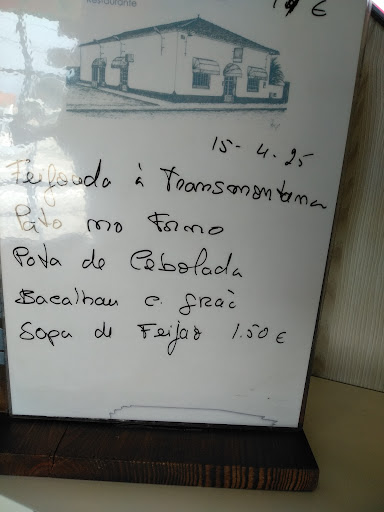 Restaurante
€
15-4-25
Feijoada à Transmontana
Pato no Forno
Pota de Cebolada
Bacalhau c. Grão
Sopa de Feijão 1.50 €